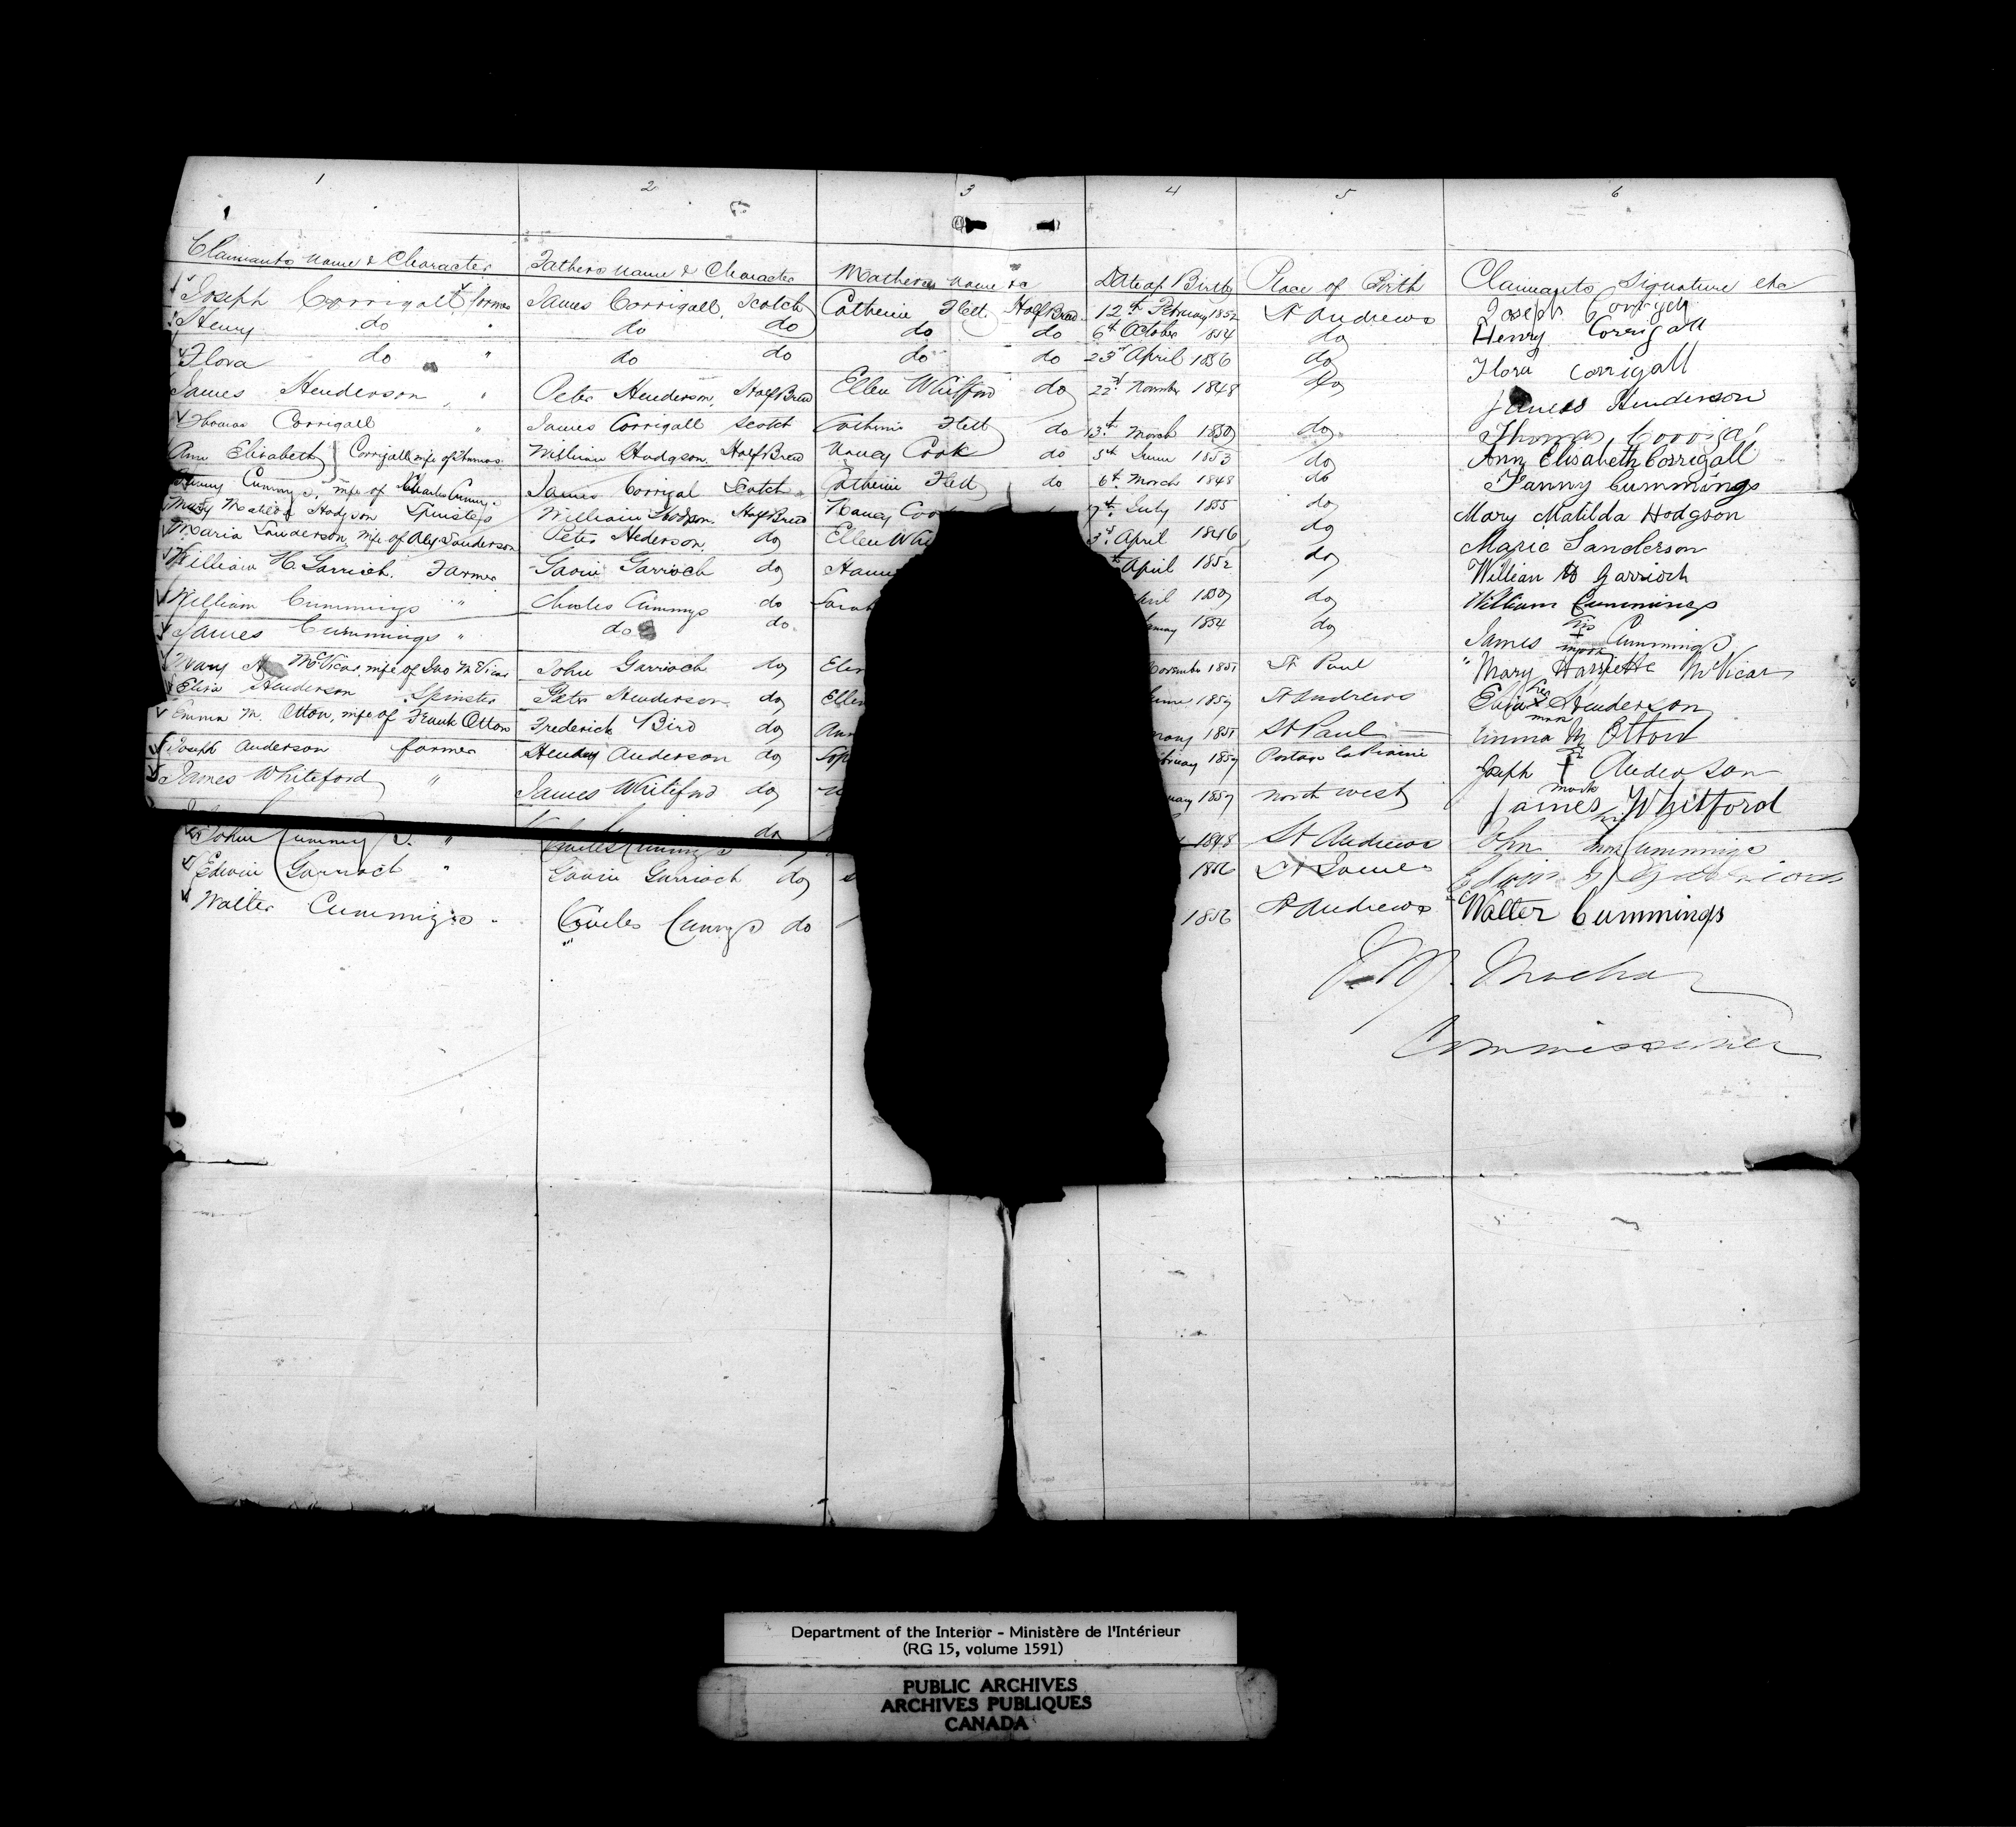 1 2 3 4 5 6
Claimants name & Character Fathers name & Character Mothers name &c Date of Birth Place of Birth Claimants Signature etc
Joseph Corrigall farmer James Corrigall, Scotch Catherine Flett Half Breed 12th February 1852 St Andrews Joseph
Henry do " do do do do 6th October 1854 do Henry Corrigall
Flora do " do do do do 23rd April 1856 do Flora Corrigall
James Henderson " Peter Henderson, Half Breed Ellen Whitford do 22nd November 1848 do James Henderson
Thomas Corrigall " James Corrigall Scotch Catherine Flett do 13th March 1850 do Thomas
Ann Elisabeth Corrigall wife of Thomas William Hudgson Half Breed Nancy Cook do 5th June 1853 do Ann Elisabeth Corrigall
Cummgs, wife of Charles Cummgs James Corrigal Scotch Catherine Flett do 6th March 1848 do Fanny Cummings
Mary Matilda Hodgson Spinster William Half Breed Nancy 7th July 1855 do Mary Matilda Hodgson
Maria Sanderson, wife of Alex Sanderson Peter Hederson, do Ellen 3rd April do Marie Sanderson
William H Garrioch. Farmer Gavin Garrioch do April 1852 do William H Garrioch
William Cummings " Charles Cummgs do 1850 do William Cummings
James Cummings " do do 1854 do James his + mark Cummings
Mary McVicar, wife of Jno McVicar John Garrioch do November 1851 St Paul Mary Harriette McVicar
Eliza Henderson Spinster Peter Henderson do Ellen June St Andrews Eliza her x mark Henderson
Emma M. Otton, wife of Frank Otton Frederick Bird do 1851 St Paul Emma M Otton
Joseph Anderson farmer Henry Anderson do Portage la Prairie Joseph + mark Anderson
James Whiteford " James Whiteford do north west James Whitford
John Cummgs " Charles Cummgs do 1848 St Andrews John mark Cummings
Edwin Garrioch " Gavin Garrioch do 1856 St James Edwin G
Walter Cummings " Charles Cummgs do 1856 St Andrews Walter Cummings
Machar
Commissioner
Department of the Interior - Ministère de l'Intérieur
(RG 15, volume 1591)
PUBLIC ARCHIVES
ARCHIVES PUBLIQUES
CANADA